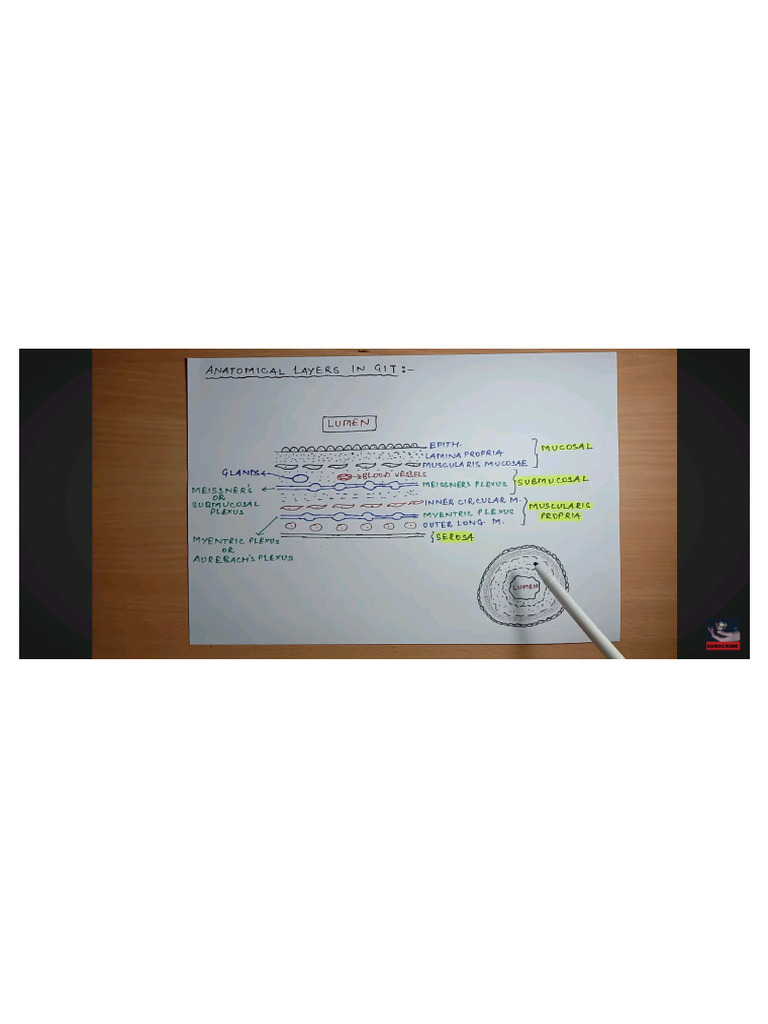 ANATOMICAL LAYERS IN GIT:-
LUMEN
EPITH.
LAMINA PROPRIA
MUSCULARIS MUCOSAE
MUCOSAL
GLANDS
BLOOD VESSELS
MEISSNERS PLEXUS
SUBMUCOSAL
MEISSNER'S
OR
SUBMUCOSAL
PLEXUS
INNER CIRCULAR M.
MYENTRIC PLEXUS
OUTER LONG. M.
MUSCULARIS
PROPRIA
SEROSA
MYENTRIC PLEXUS
OR
AUREBACH'S PLEXUS
LUMEN
SUBSCRIBE